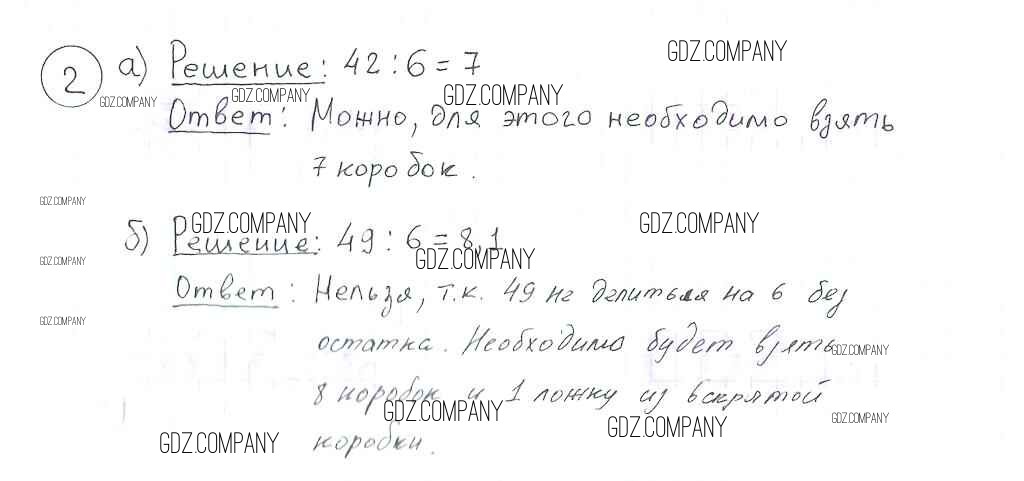 2 а) Решение: 42 : 6 = 7
GDZ.COMPANY
GDZ.COMPANY GDZ.COMPANY GDZ.COMPANY
Ответ: Можно, для этого необходимо взять
7 коробок.
GDZ.COMPANY
GDZ.COMPANY GDZ.COMPANY
б) Решение: 49 : 6 = 8,1
GDZ.COMPANY GDZ.COMPANY
Ответ: Нельзя, т.к. 49 не делиться на 6 без
GDZ.COMPANY
остатка. Необходимо будет взять
GDZ.COMPANY
8 коробок и 1 ложку из вскрятой
GDZ.COMPANY GDZ.COMPANY GDZ.COMPANY
GDZ.COMPANY коробки.